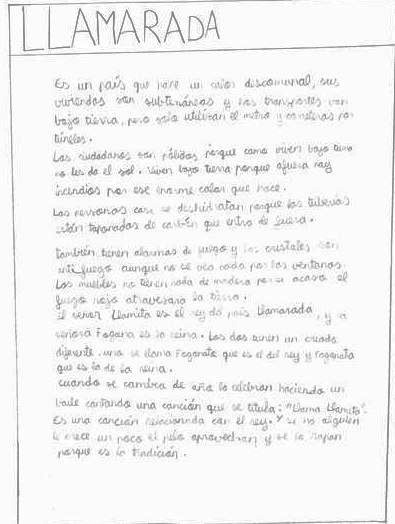 LLAMARADA
Es un país que hace un calor descomunal, sus
viviendas son subterráneas y los transportes van
bajo tierra, pero solo utilizan el metro y carreteras por
túneles.
Los ciudadanos son pálidos porque como viven bajo tierra
no les da el sol. Viven bajo tierra porque afuera hay
incendios por ese enorme calor que hace.
Las personas casi se deshidratan porque las tuberías
están taponadas de carbón que entra de fuera.
también tienen alarmas de fuego y los cristales son
anti-fuego aunque no se vea nada por las ventanas.
Los muebles no tienen nada de madera por si acaso el
fuego rojo atravesara la tierra.
El señor Llamita es el rey del país Llamarada, y la
señora Fogana es la reina. Los dos tienen un criado
diferente, uno se llama Foganato que es el del rey y Foganata
que es la de la reina.
cuando se cambia de año lo celebran haciendo un
baile cantando una canción que se titula: "Llama Llamita".
Es una canción relacionada con el rey. Y si no alguien
le crece un poco el pelo aprovechan y se lo rapan
porque es la tradición.